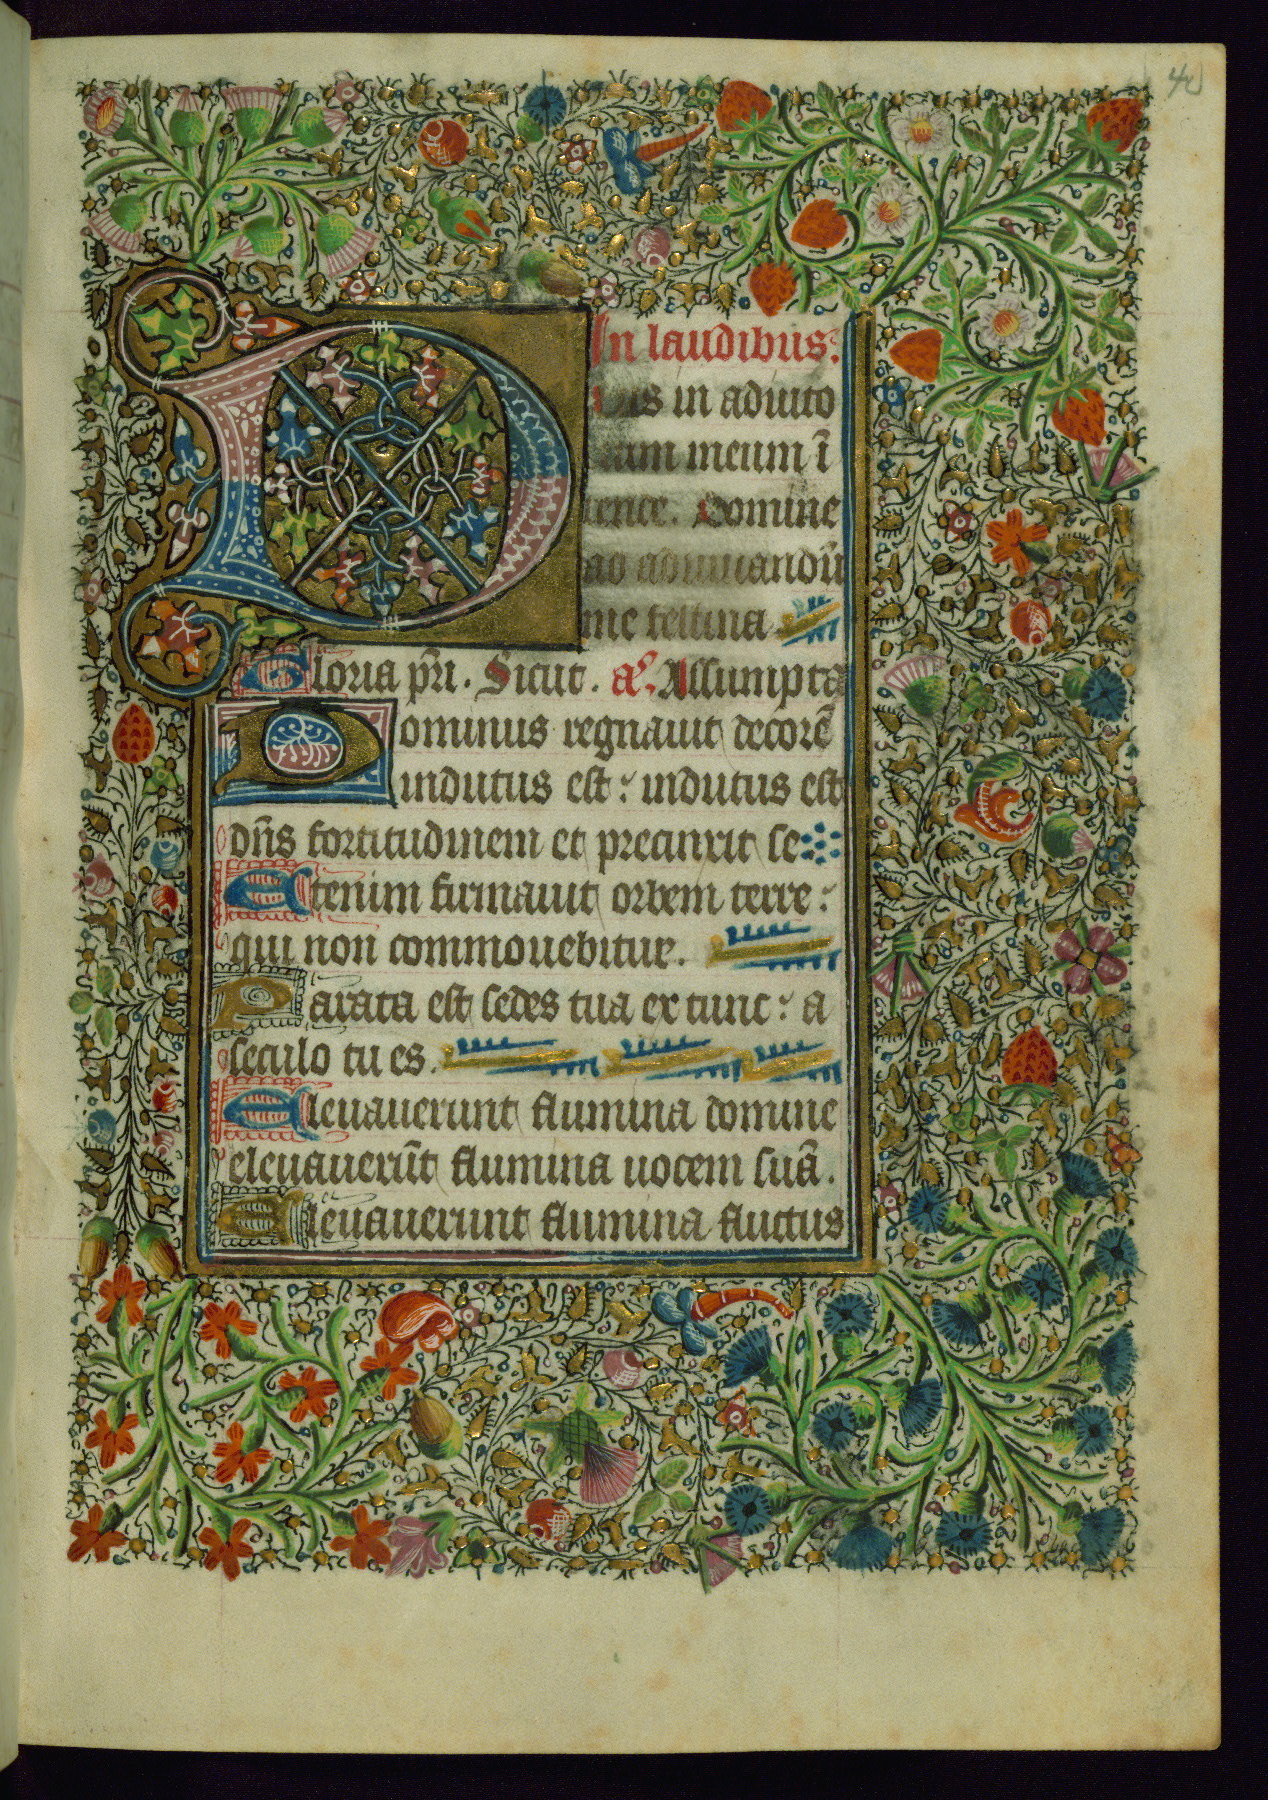 40
In laudibus:
D us in adiuto
rium meum ī
tence. Domine
ad adiuuandū
me festina
Gloria pr̄i. Sicut. aͦ. Assumpta
Dominus regnauit decorē
indutus est: indutus est
dn̄s fortitudinem et precinxit se
Etenim firmauit orbem terre:
qui non commouebitur.
Parata est sedes tua ex tunc: a
seculo tu es.
Eleuauerunt flumina domine
eleuauerūt flumina uocem suā.
Eleuauerunt flumina fluctus